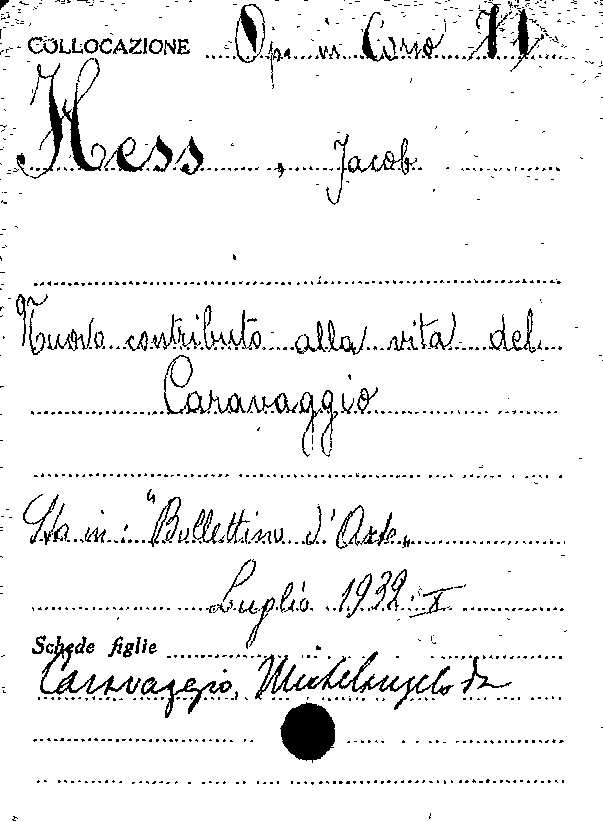 COLLOCAZIONE Op. in Corso 71
Hess, Jacob
Nuovo contributo alla vita del
Caravaggio
Sta in: "Bollettino d'Arte„
Luglio 1932-X
Schede figlie
Caravaggio, Michelangelo da